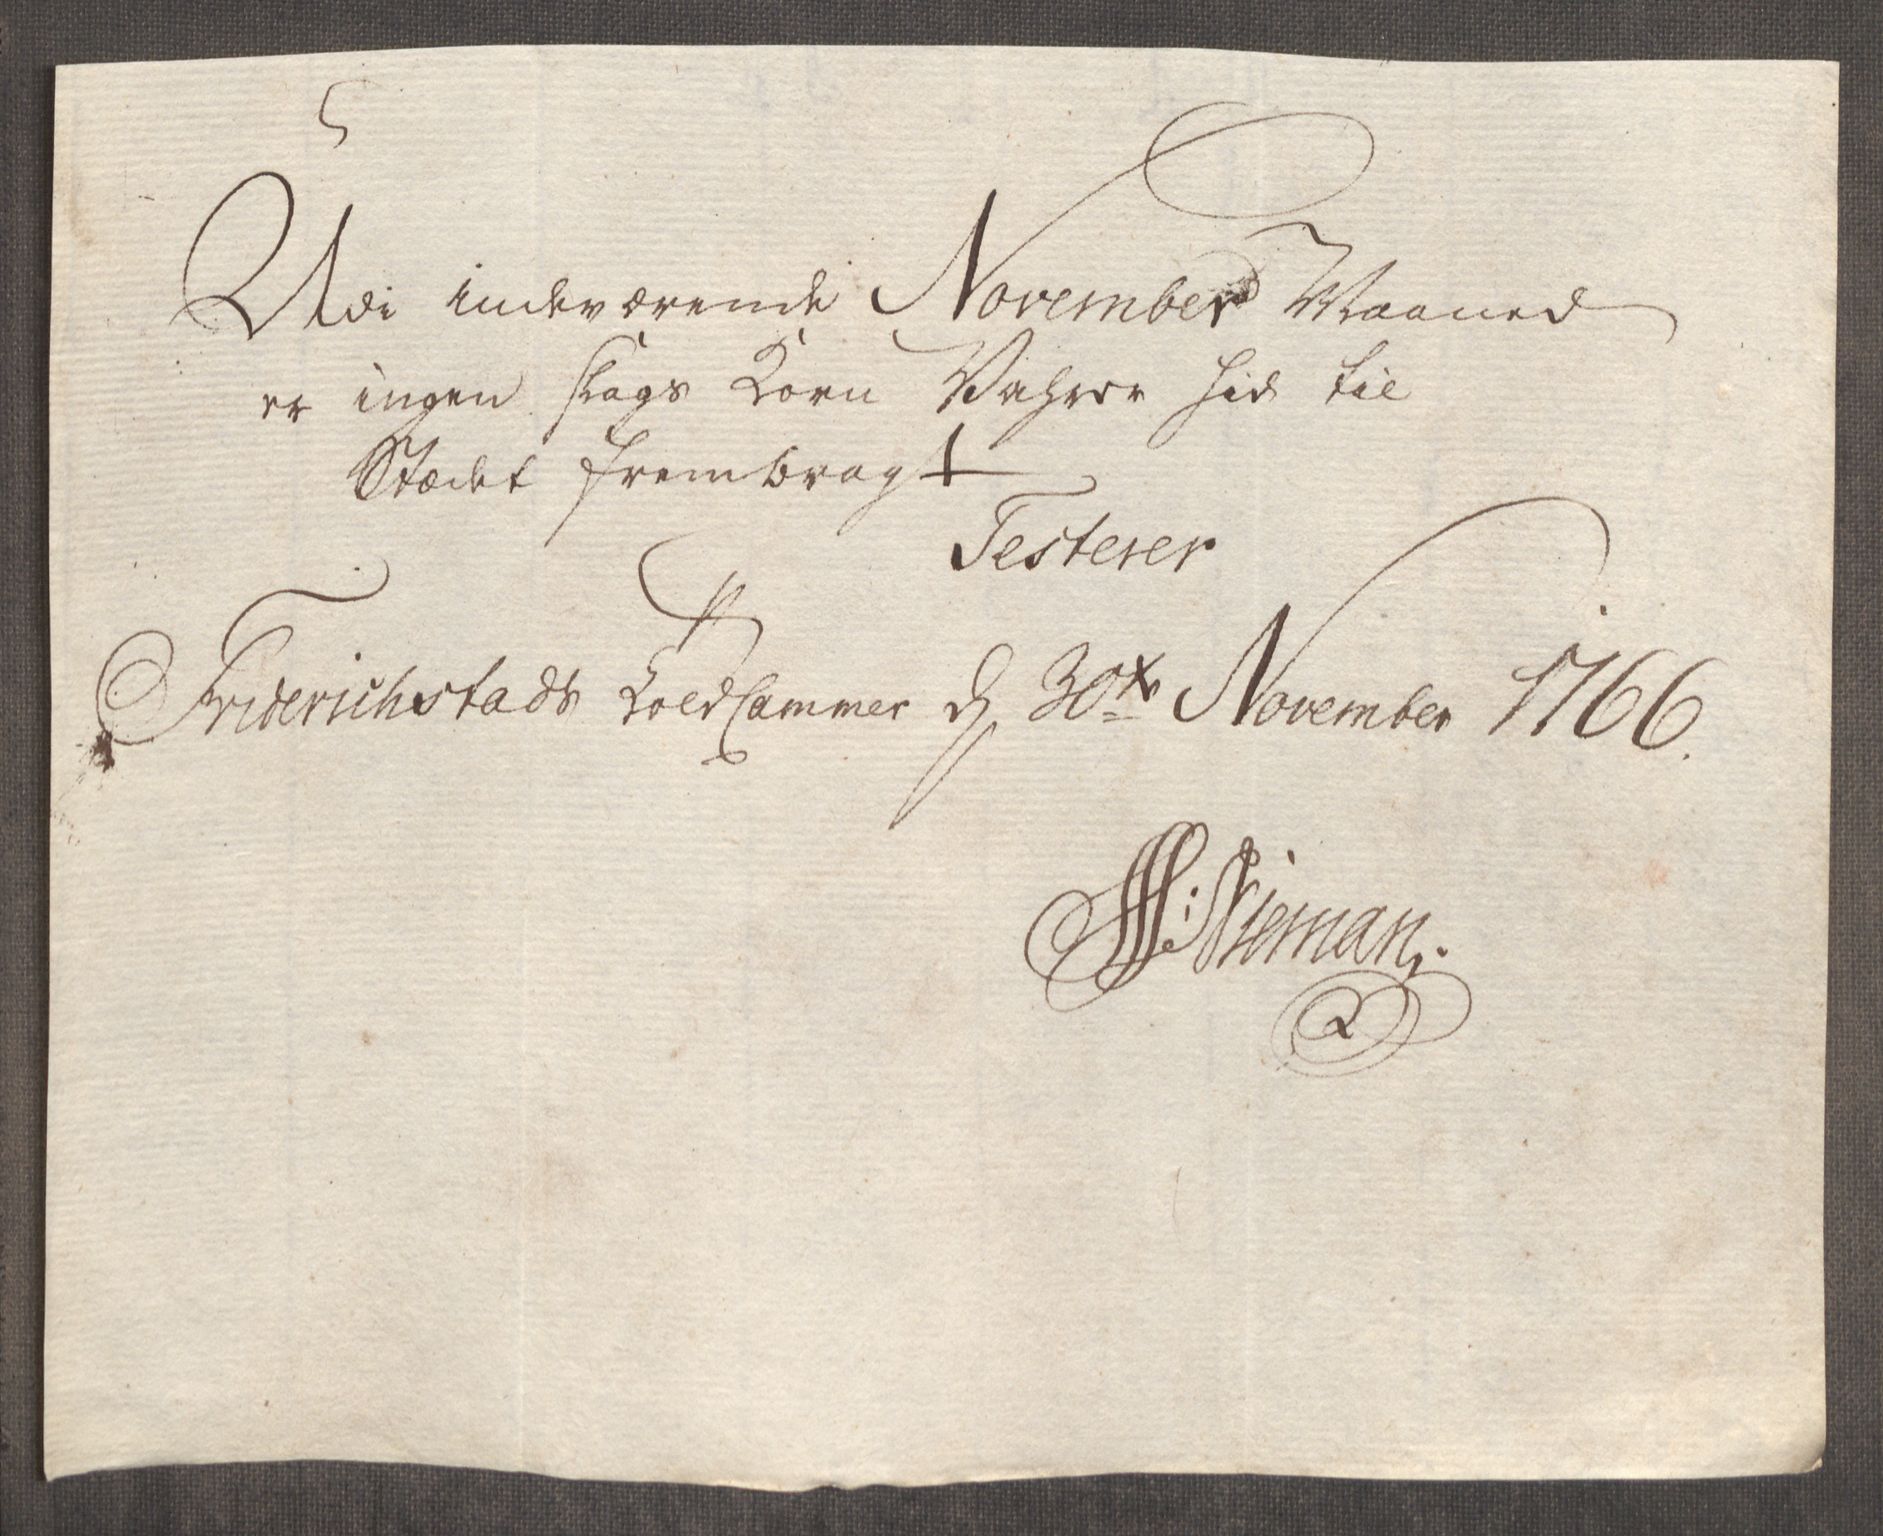 Udi indeværende November Maaned
er ingen slags Korn Vahrer hid til
Stædet frembragt
Testerer
Friderichstads Told Cammer d 30te November 1766.
Nieman